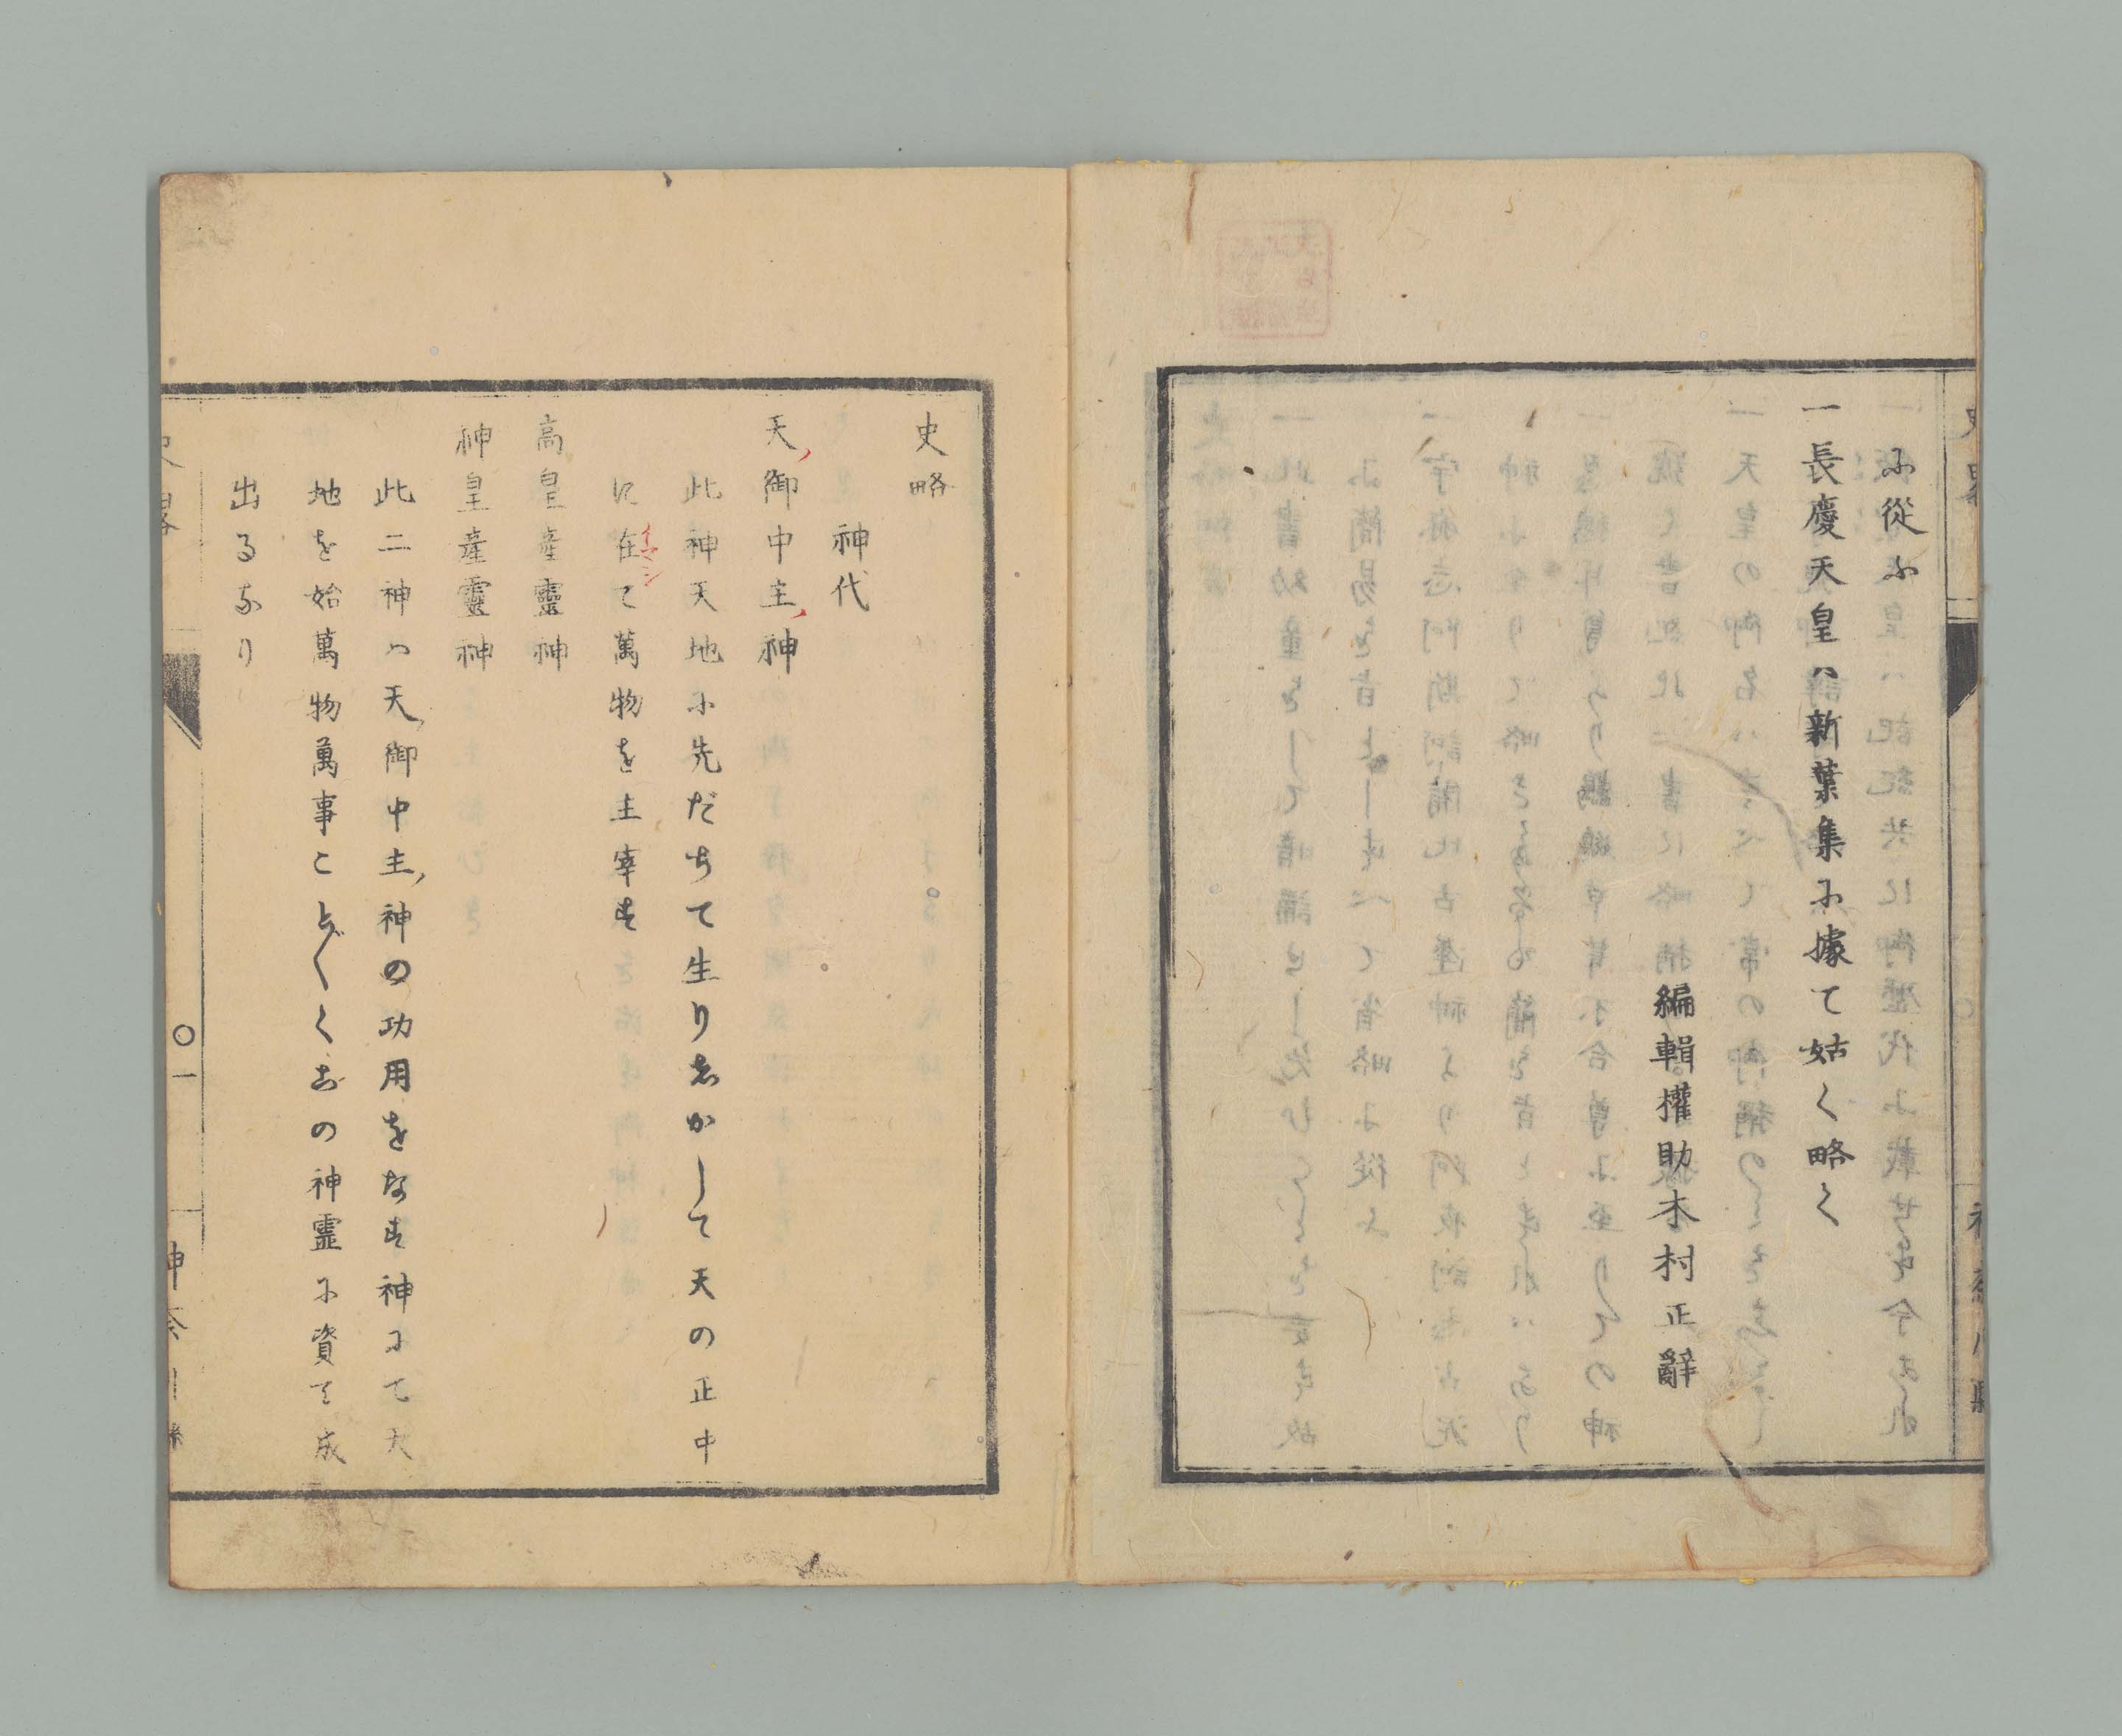 に從ふ
一長慶天皇ハ新葉集に據て姑く略く
編輯權助木村正辭
史略
神代
天、御中主、神
此神天地に先だちて生りましかして天の正中
に在て萬物を主宰す
イマシ
高皇產靈神
神皇產靈神
此二神ハ天、御中主、神の功用をなす神にて天
地を始萬物萬事こと〴〵くおの神霊に資て成
出るなり
〇一